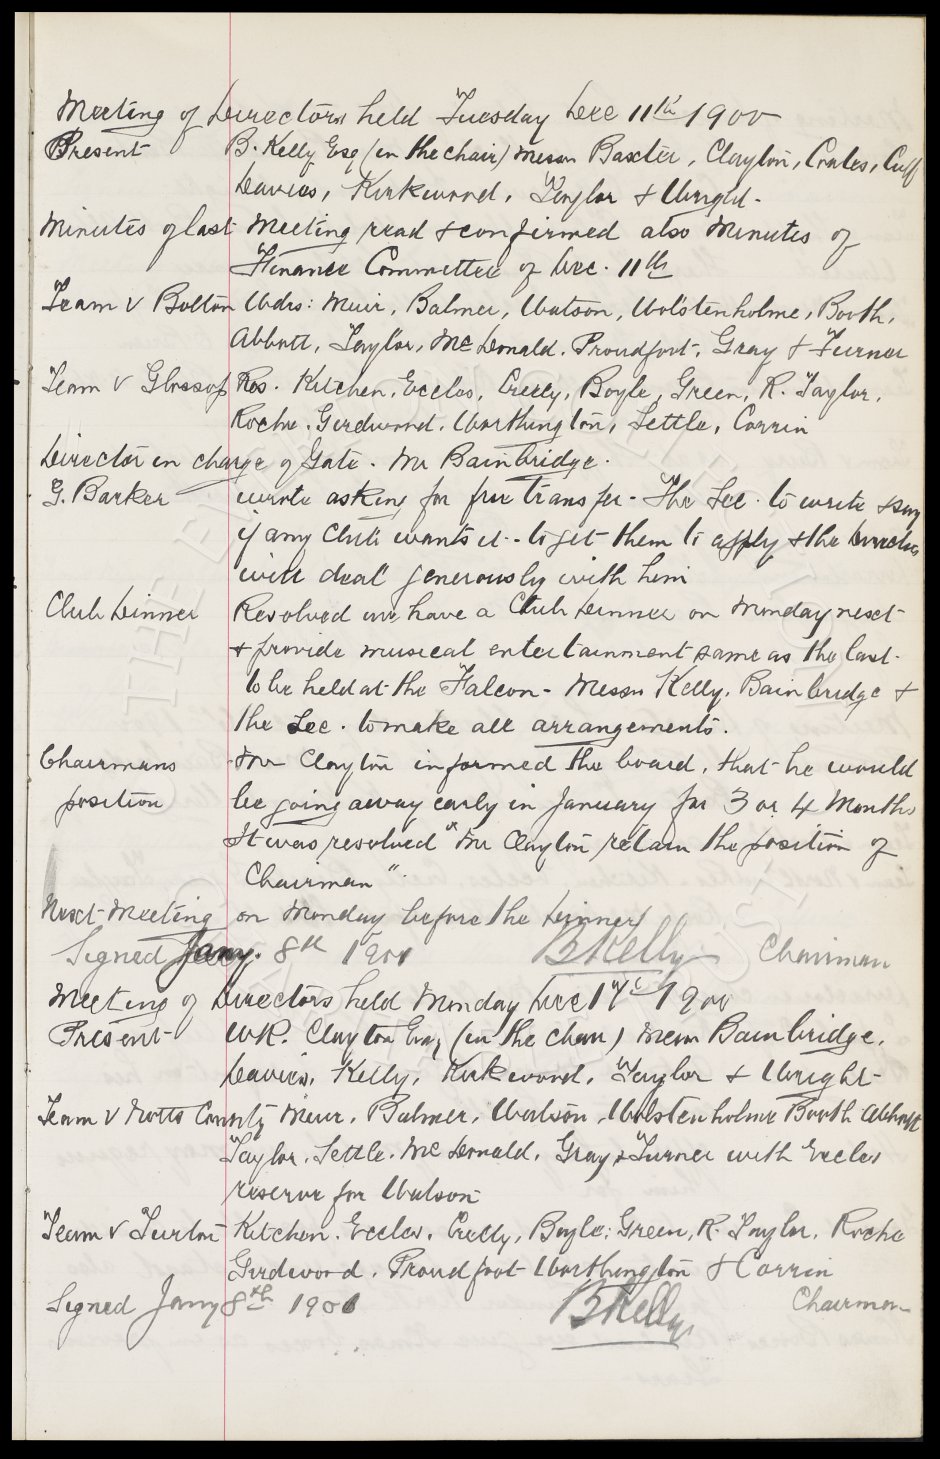 Meeting of Directors held Tuesday Dec 11th 1900
Present B. Kelly Esq (in the chair) Messrs Baxter, Clayton, Coates, Cuff
Davies, Kirkwood, Taylor & Wright.
Minutes of last Meeting read & confirmed also Minutes of
Finance Committee of Dec. 11th
Team v Bolton Wdrs: Muir, Balmer, Watson, Wolstenholme, Booth,
Abbott, Taylor, McDonald, Proudfoot, Gray & Turner
Team v Glossop Res. Kitchen, Eccles, Crelly, Boyle, Green, R. Taylor,
Roche, Girdwood, Worthington, Settle, Corrin
Director in charge of Gate. Mr Bainbridge.
G. Barker wrote asking for free transfer - The Sec. to write & say
if any Club wants it - to get them to apply & the Directors
will deal generously with him
Club Dinner Resolved we have a Club Dinner on Monday next
& provide musical entertainment same as the last.
to be held at the Falcon - Messrs Kelly, Bainbridge &
the Sec. to make all arrangements.
Chairmans Mr Clayton informed the board, that he would
position be going away early in January for 3 or 4 Months
It was resolved "Mr Clayton retain the position of
Chairman".
Next Meeting on Monday before the Dinner
Signed Jany. 8th 1901 B Kelly Chairman
Meeting of Directors held Monday Dec 17th 1900
Present W.R. Clayton Esq (in the chair) Messrs Bainbridge,
Davies, Kelly, Kirkwood, Taylor & Wright
Team v Notts County Muir, Balmer, Watson, Wolstenholme Booth Abbott
Taylor, Settle, McDonald, Gray & Turner with Eccles
reserve for Watson
Team v Turton Kitchen, Eccles, Crelly, Boyle, Green, R. Taylor, Roche
Girdwood, Proudfoot Worthington & Corrin
Signed Jany 8th 1901 B Kelly Chairman